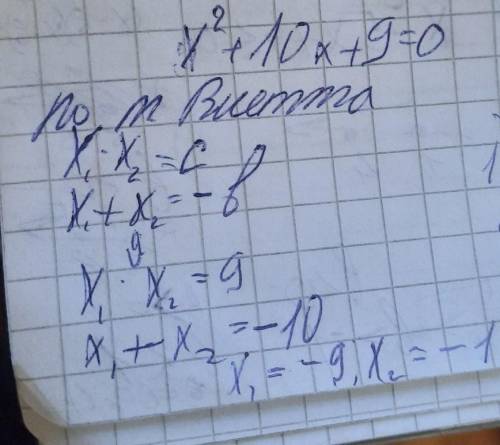 x² + 10x + 9 = 0
по т Виетта
x₁ · x₂ = c
x₁ + x₂ = -b
x₁ · x₂ = 9
x₁ + x₂ = -10
x₁ = -9, x₂ = -1